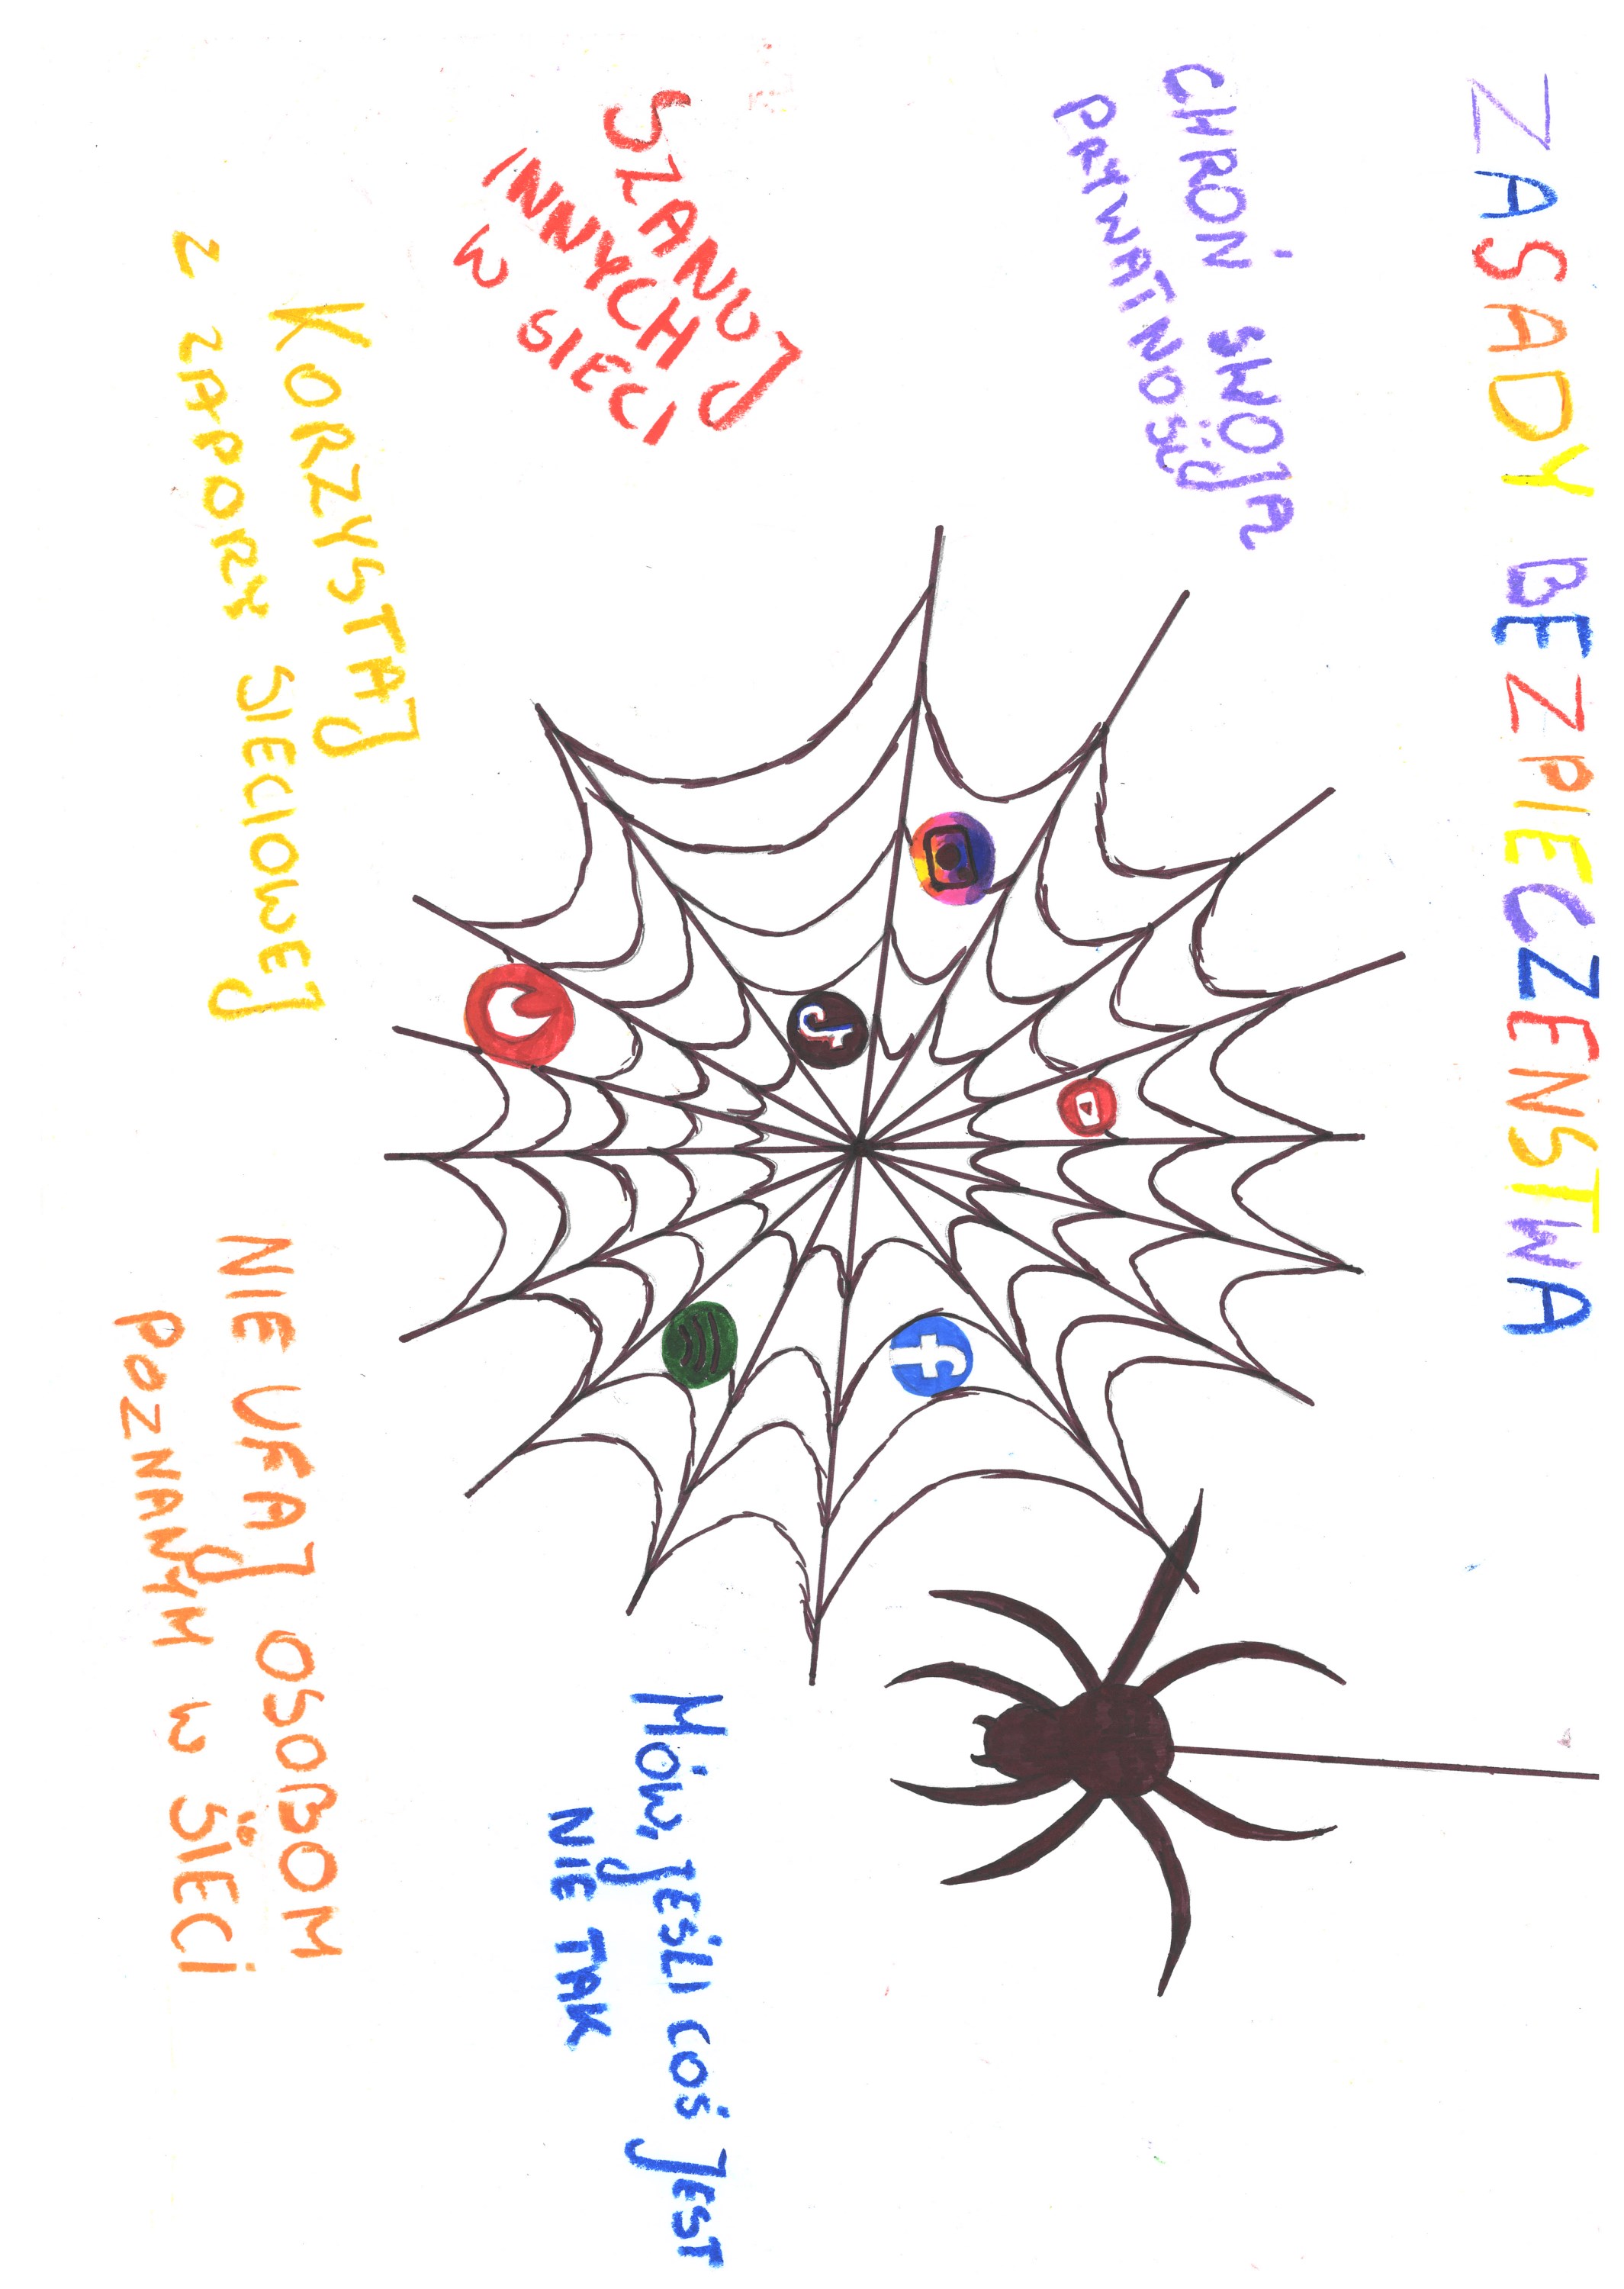 ZASADY BEZPIECZEŃSTWA
CHROŃ SWOJA
PRYWATNOŚĆ
SZANUJ
INNYCH
W SIECI
KORZYSTAJ
Z ZAPORY SIECIOWEJ
MÓW, JEŚLI COŚ JEST
NIE TAK
NIE UFAJ OSOBOM
POZNANYM W SIECI